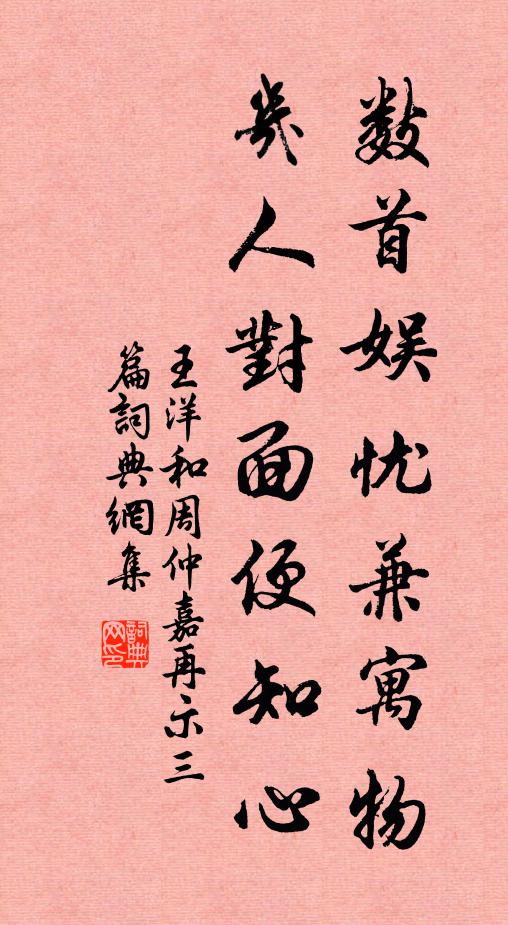 数首娱忧兼寓物
幾人對面便知心
王洋和周仲嘉再示三
篇詞典網集
詞典
网印